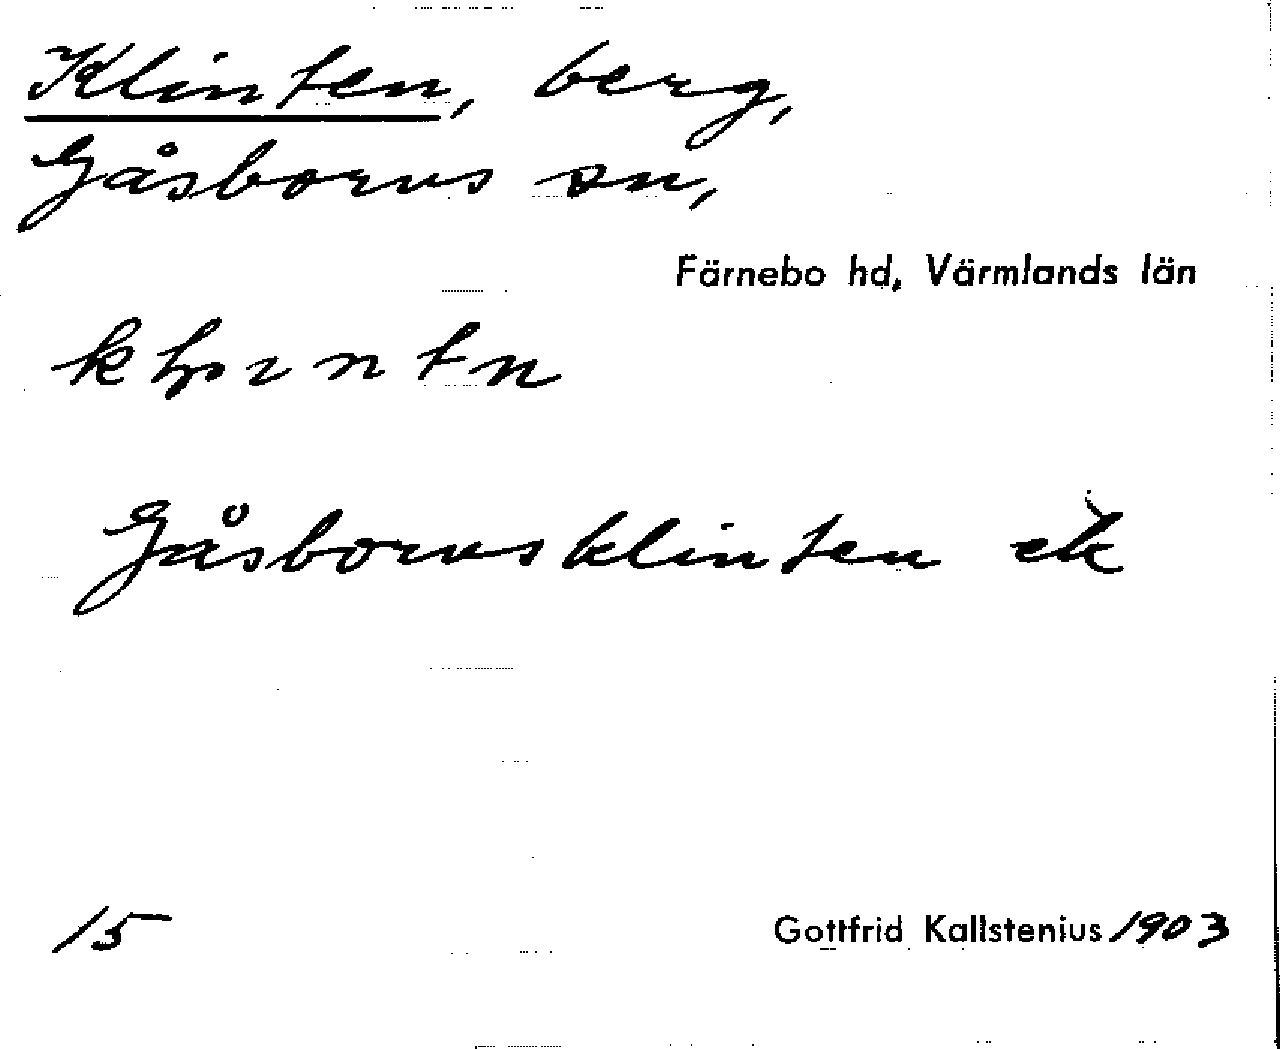 Klinten, berg,
Gåsborns sn,
Färnebo hd, Värmlands län
Gåsbornsklinten ek
15
Gottfrid Kallstenius 1903